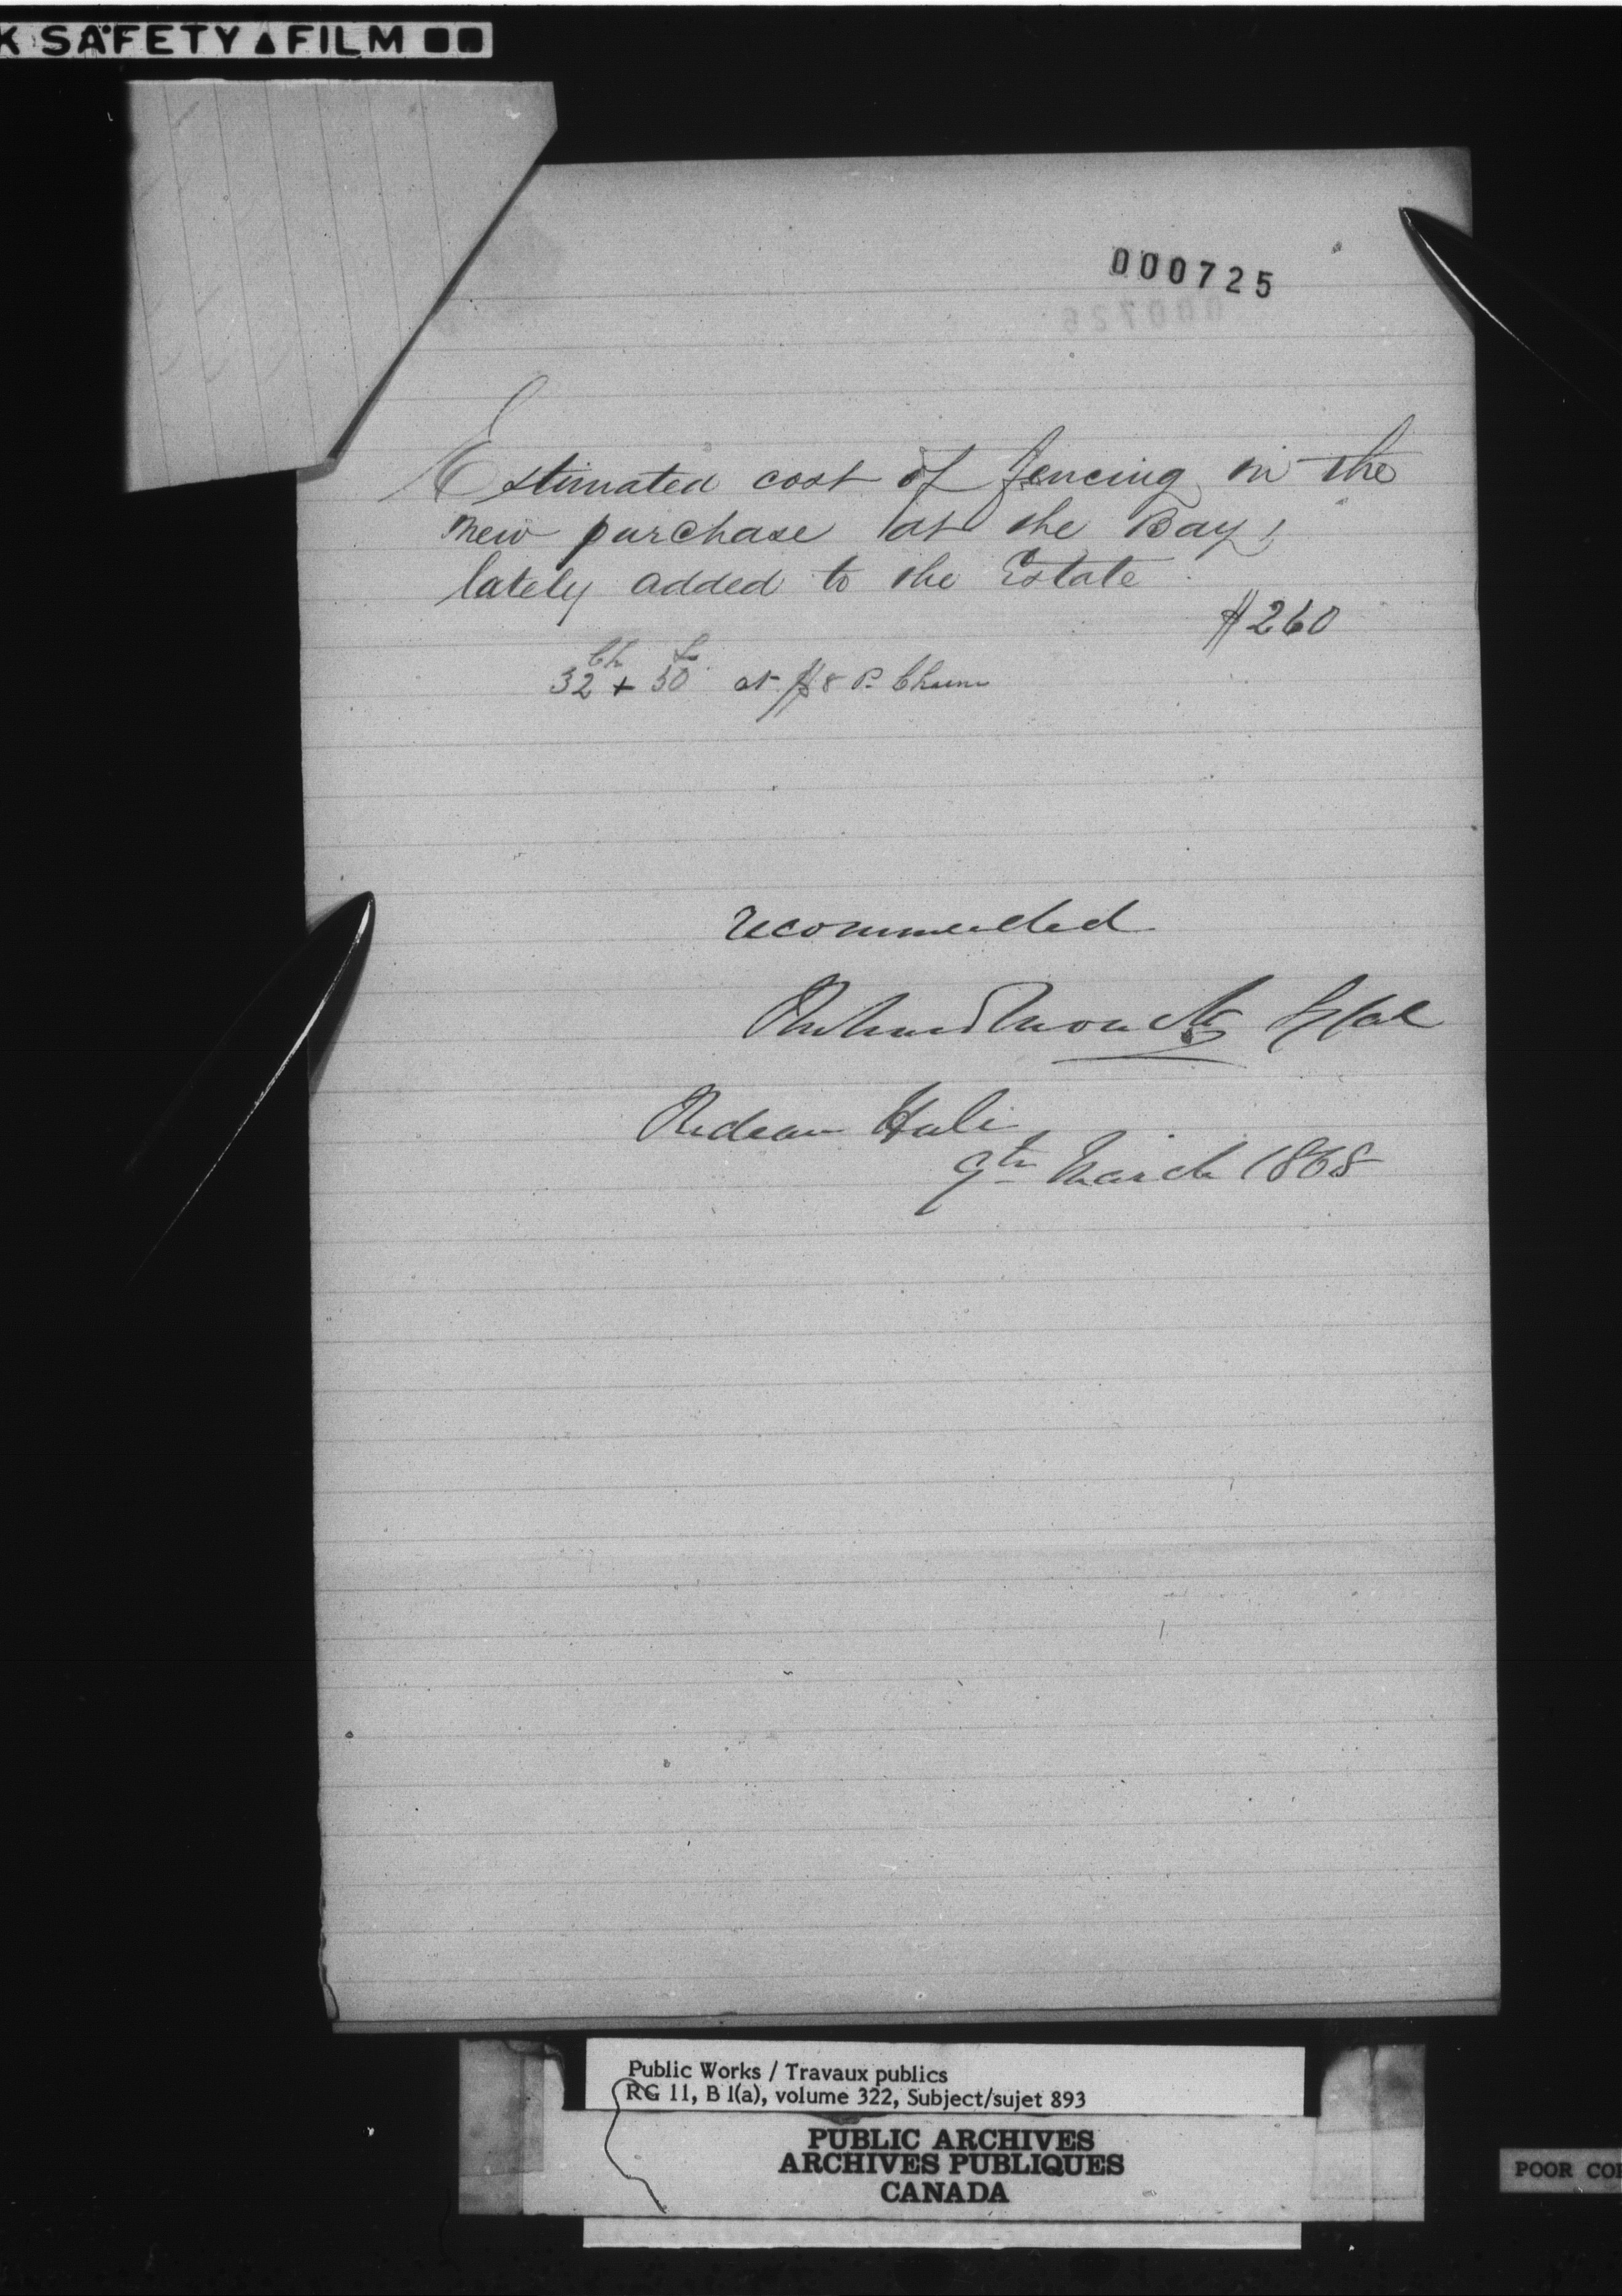 K SAFETY FILM
000725
Estimated cost of fencing in the
new purchase at the Bay,
lately added to the Estate
$260
Ch L
32 + 50 at $8 P. Chain
recommended
Richard Monck Lt Col
Rideau Hall
9th March 1868
Public Works / Travaux publics
RG 11, B 1(a), volume 322, Subject/sujet 893
PUBLIC ARCHIVES
ARCHIVES PUBLIQUES
CANADA
POOR CO